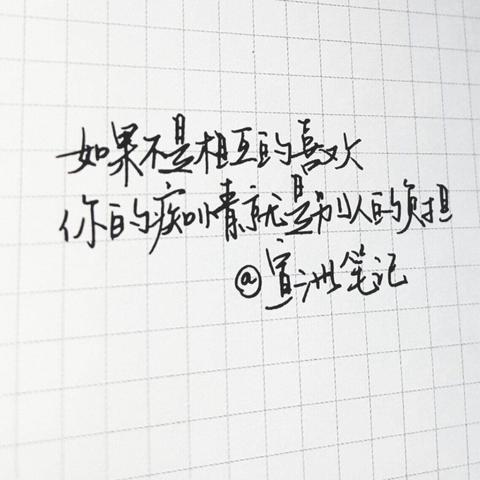 如果不是相互的喜欢
你的痴情就是别人的负担
@宣洲笔记